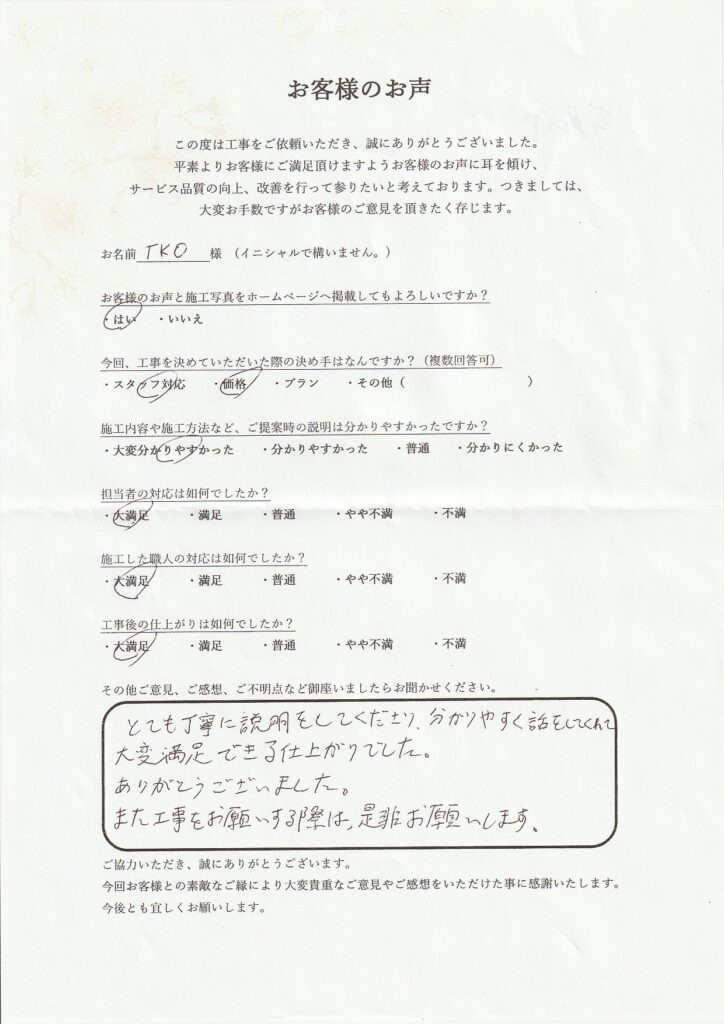 お客様のお声
この度は工事をご依頼いただき、誠にありがとうございました。
平素よりお客様にご満足頂けますようお客様のお声に耳を傾け、
サービス品質の向上、改善を行って参りたいと考えております。つきましては、
大変お手数ですがお客様のご意見を頂きたく存じます。
お名前 TKO 様 （イニシャルで構いません。）
お客様のお声と施工写真をホームページへ掲載してもよろしいですか？
・はい ・いいえ
今回、工事を決めていただいた際の決め手はなんですか？（複数回答可）
・スタッフ対応 ・価格 ・プラン ・その他（ ）
施工内容や施工方法など、ご提案時の説明は分かりやすかったですか？
・大変分かりやすかった ・分かりやすかった ・普通 ・分かりにくかった
担当者の対応は如何でしたか？
・大満足 ・満足 ・普通 ・やや不満 ・不満
施工した職人の対応は如何でしたか？
・大満足 ・満足 ・普通 ・やや不満 ・不満
工事後の仕上がりは如何でしたか？
・大満足 ・満足 ・普通 ・やや不満 ・不満
その他ご意見、ご感想、ご不明点など御座いましたらお聞かせください。
とても丁寧に説明をしてくださり、分かりやすく話をしてくれて
大変満足できる仕上がりでした。
ありがとうございました。
また工事をお願いする際は、是非お願いします。
ご協力いただき、誠にありがとうございます。
今回お客様との素敵なご縁により大変貴重なご意見やご感想をいただけた事に感謝いたします。
今後とも宜しくお願いします。